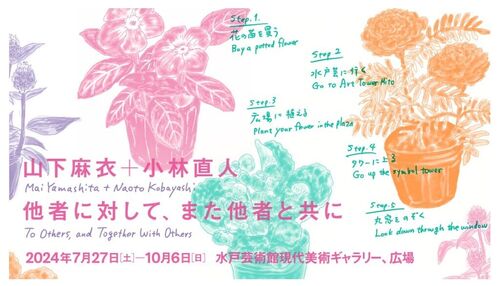 Step.1.
花の苗を買う
Buy a potted flower
Step 2
水戸芸に行く
Go to Art Tower Mito
Step.3
広場に植える
Plant your flower in the plaza
Step.4
タワーに上る
Go up the symbol tower
Step.5
丸窓をのぞく
Look down through the window
山下麻衣+小林直人
Mai Yamashita + Naoto Kobayashi
他者に対して、また他者と共に
To Others, and Together With Others
2024年7月27日[土]—10月6日[日] 水戸芸術館現代美術ギャラリー、広場